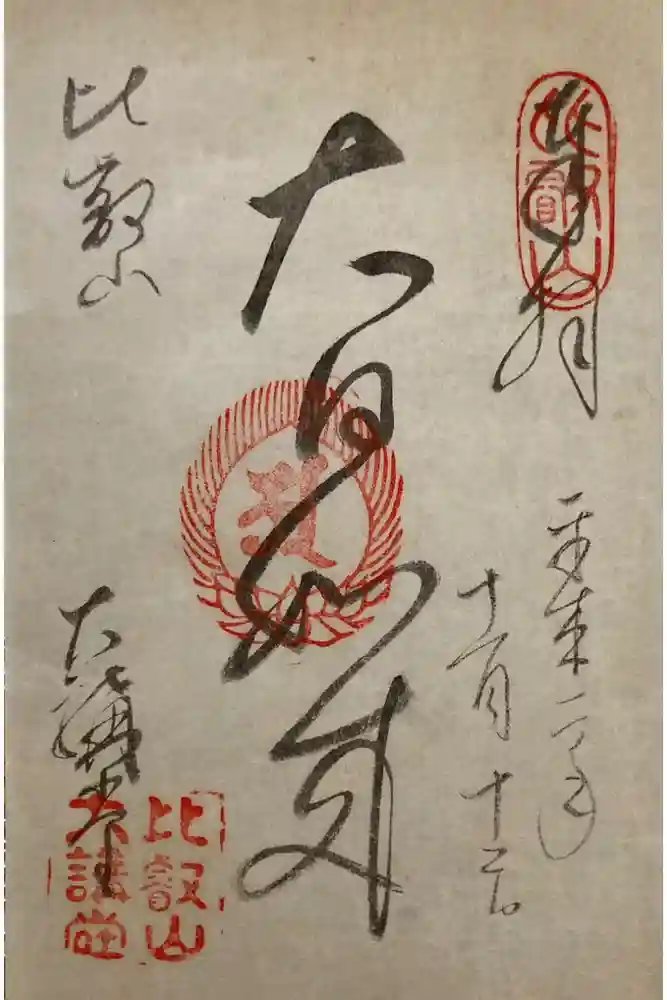 奉拝
比叡山
平成二年
十一月十二日
大日如来
比叡山
大講堂
比叡山
大講堂